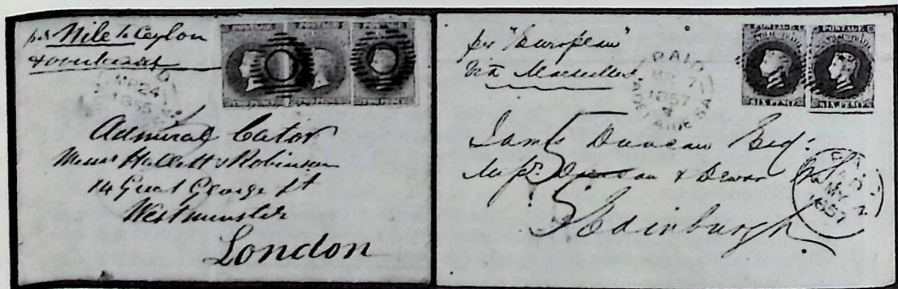 per Nile to Ceylon
& overland
1855
Admiral Cator
Messrs Hallett & Robinson
14 Great George St
Westminster
London
per "European"
via Marseilles
PAID
MR 7
1857
ADELAIDE SA
POSTAGE
SIX PENCE
SIX PENCE
James Duncan Esq:
Duncan & Dewar
Edinburgh
PAID
MY
1857